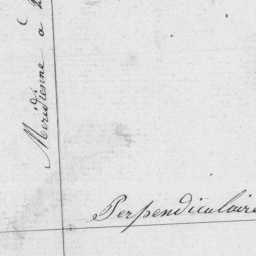 Méridienne à
Perpendiculaire